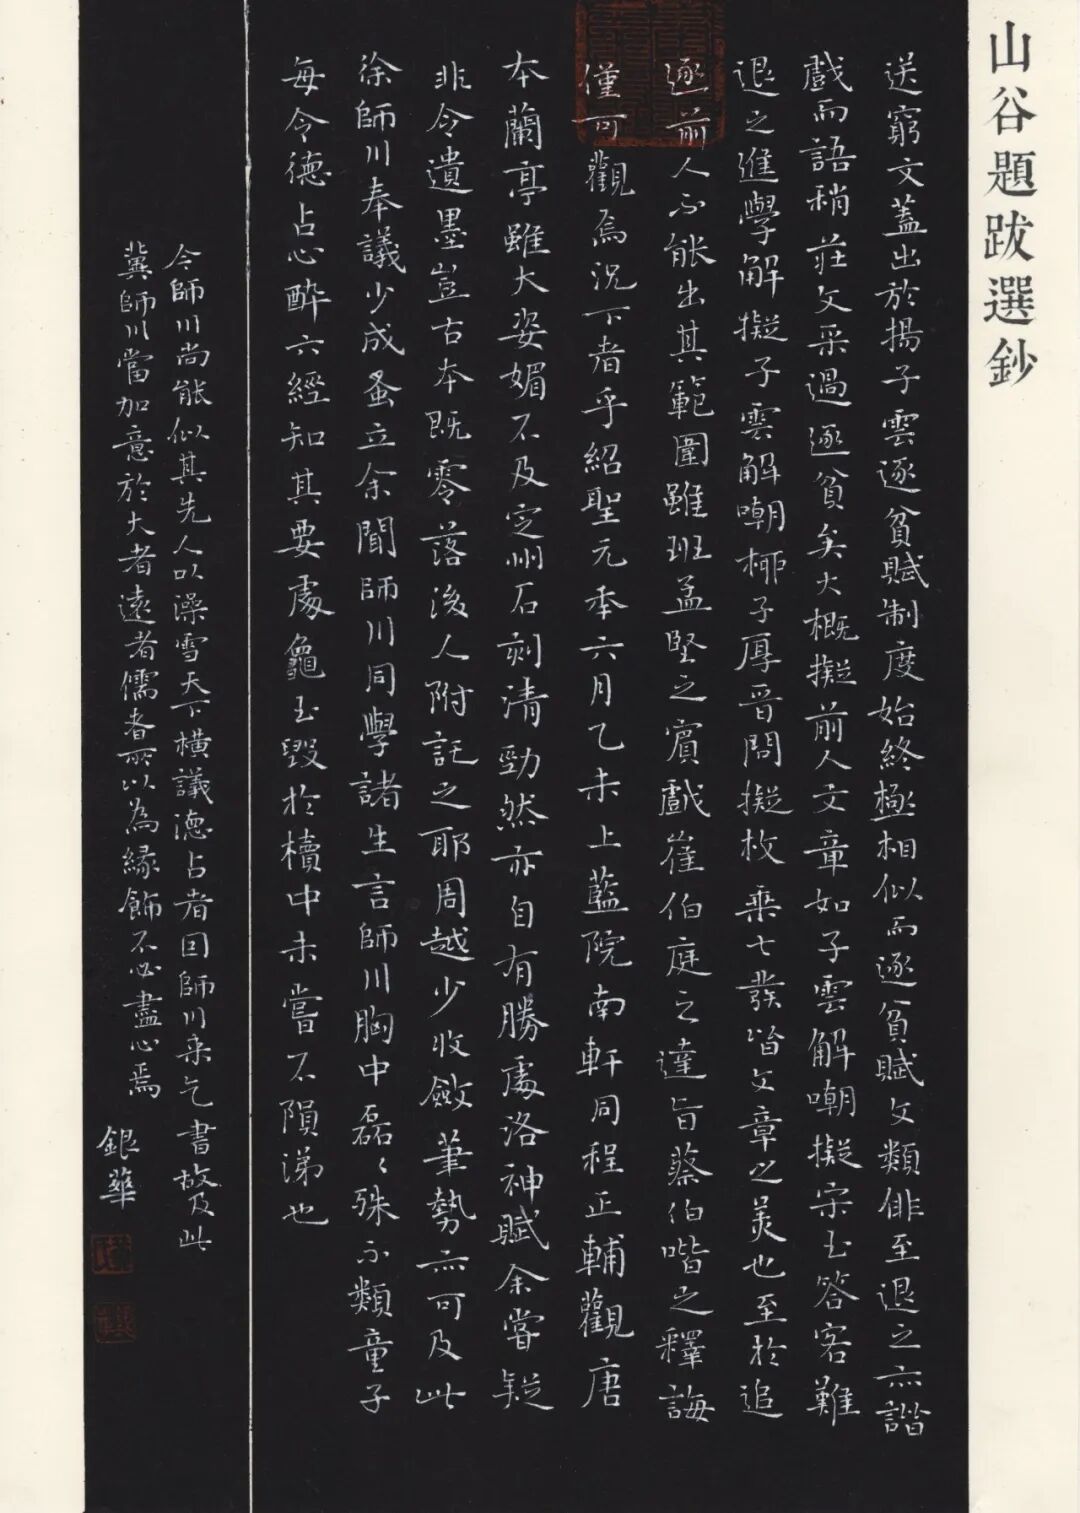 山谷題跋選鈔
送窮文蓋出於揚子雲逐貧賦制度始終極相似而逐貧賦文類俳至退之亦諧
戲而語稍莊文采過逐貧矣大概擬前人文章如子雲解嘲擬宋玉答客難
退之進學解擬子雲解嘲柳子厚晉問擬枚乘七發皆文章之美也至於追
逐前人不能出其範圍雖班孟堅之賓戲崔伯庭之達旨蔡伯喈之釋誨
僅可觀焉況下者乎紹聖元年六月乙未上藍院南軒同程正輔觀唐
本蘭亭雖大姿媚不及定州石刻清勁然亦自有勝處洛神賦余嘗疑
非令遺墨豈古本既零落後人附託之耶周越少收斂筆勢亦可及此
徐師川奉議少成蚤立余聞師川同學諸生言師川胸中磊々殊不類童子
每令德占心醉六經知其要處龜玉毀於櫝中未嘗不隕涕也
今師川尚能似其先人以澡雪天下橫議德占者因師川來乞書故及此
冀師川當加意於大者遠者儒者所以為緣飾不必盡心焉
銀華